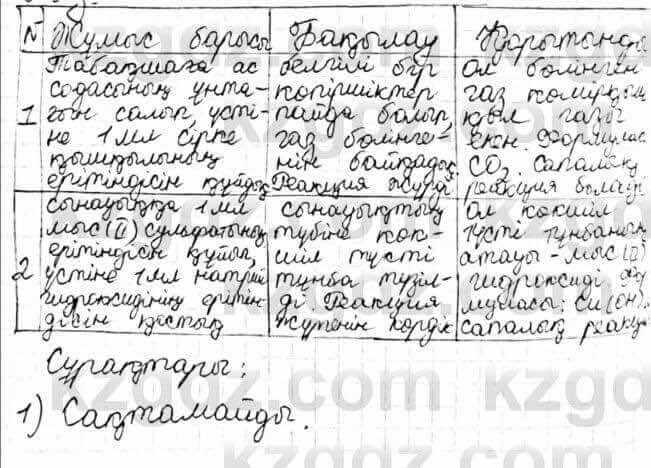 № Жұмыс барысы Бақылау Қорытынды
1
Табақшаға ас
содасының ұнта-
ғын салып, үсті-
не 1 мл сірке
қышқылының
ерітіндісін құйдық
белгілі бір
көпіршіктер
пайда болып,
газ бөлінге-
нін байқадық.
Реакция жүрді
Ол бөлінген
газ көмірқыш
қыл газы
екен. Формуласы
CO₂. Сапалық
реакция болады
2
сынауыққа 1 мл
мыс (II) сульфатының
ерітіндісін құйып,
үстіне 1 мл натрий
гидроксидінің ерітін
дісін қостық
сынауықтың
түбіне көк-
шіл түсті
тұнба түзіл-
ді Реакция
жүргенін көрдік
Ол көкшіл
түсті тұнбаның
атауы - мыс (II)
гидроксиді фор
муласы: Cu(OH)₂
сапалық реакц
Сұрақтары:
1) Сақтамайды.
kzgdz.com